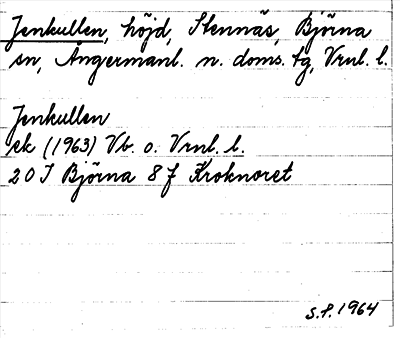 Jenkullen, höjd, Stennäs, Björna
sn, Ångermanl. n. doms. tg, Vrnl. l.
Jenkullen
ek (1963) Vb. o. Vrnl. l.
20 J Björna 8 f Kroknoret
S.F. 1964